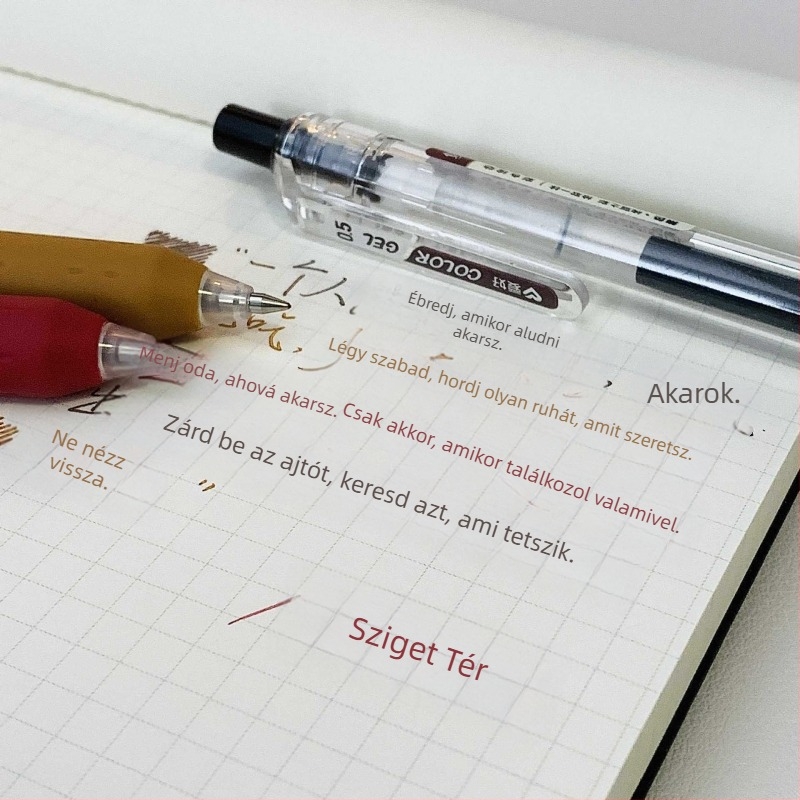 0.5 GEL COLOR 爱好
一个人、
Ébredj, amikor aludni
akarsz.
Légy szabad, hordj olyan ruhát, amit szeretsz.
Akarok.
Menj oda, ahová akarsz. Csak akkor, amikor találkozol valamivel.
Zárd be az ajtót, keresd azt, ami tetszik.
Ne nézz
vissza.
Sziget Tér